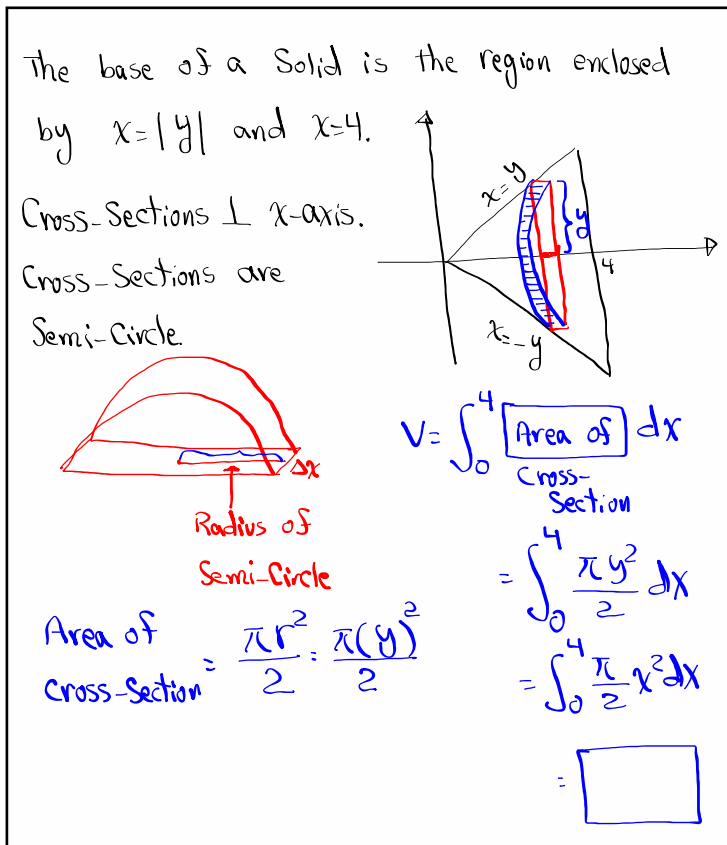 The base of a Solid is the region enclosed
by x=|y| and x=4.
Cross-Sections ⊥ x-axis.
Cross-Sections are
Semi-Circle.
x=y
y
4
x=-y
Δx
Radius of
Semi-Circle
Area of
Cross-Section = πr²/2 = π(y)²/2
V= ∫₀⁴ Area of dx
Cross-
Section
= ∫₀⁴ πy²/2 dx
= ∫₀⁴ π/2 x² dx
=